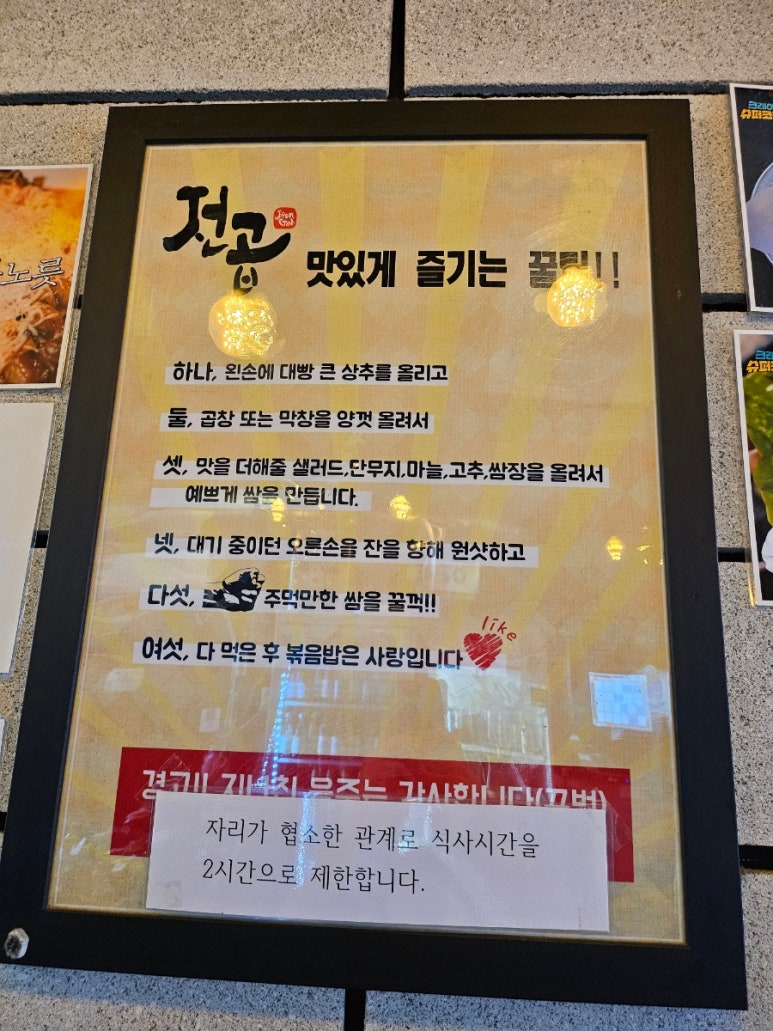 전곱
맛있게 즐기는 꿀팁!!
하나, 왼손에 대빵 큰 상추를 올리고
둘, 곱창 또는 막창을 양껏 올려서
셋, 맛을 더해줄 샐러드,단무지,마늘,고추,쌈장을 올려서
예쁘게 쌈을 만듭니다.
넷, 대기 중이던 오른손을 잔을 향해 원샷하고
다섯, 주먹만한 쌈을 꿀꺽!!
여섯, 다 먹은 후 볶음밥은 사랑입니다
like
경고!! 지나친 음주는 감사합니다(꾸벅)
자리가 협소한 관계로 식사시간을
2시간으로 제한합니다.
노릇
크레이
슈퍼
크레
슈퍼